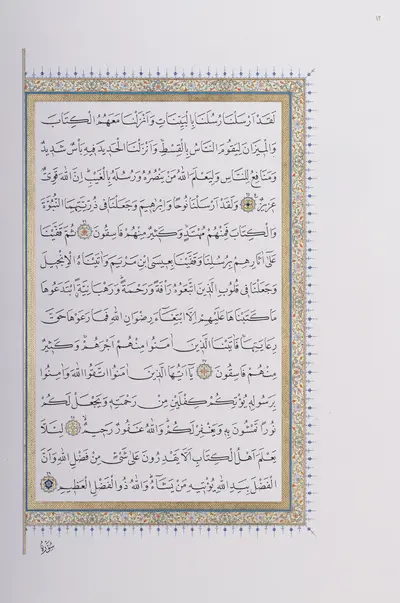 ١٢
لَقَدْ اَرْسَلْنَا رُسُلَنَا بِالْبَيِّنَاتِ وَاَنْزَلْنَا مَعَهُمُ الْكِتَابَ
وَالْمِيزَانَ لِيَقُومَ النَّاسُ بِالْقِسْطِ وَاَنْزَلْنَا الْحَدِيدَ فِيهِ بَأْسٌ شَدِيدٌ
وَمَنَافِعُ لِلنَّاسِ وَلِيَعْلَمَ اللهُ مَنْ يَنْصُرُهُ وَرُسُلَهُ بِالْغَيْبِ اِنَّ اللهَ قَوِيٌّ
عَزِيزٌ وَلَقَدْ اَرْسَلْنَا نُوحًا وَاِبْرٰهِيمَ وَجَعَلْنَا فِي ذُرِّيَّتِهِمَا النُّبُوَّةَ
وَالْكِتَابَ فَمِنْهُمْ مُهْتَدٍ وَكَثِيرٌ مِنْهُمْ فَاسِقُونَ ثُمَّ قَفَّيْنَا
عَلٰى اٰثَارِهِمْ بِرُسُلِنَا وَقَفَّيْنَا بِعِيسَى ابْنِ مَرْيَمَ وَاٰتَيْنَاهُ الْاِنْجِيلَ
وَجَعَلْنَا فِي قُلُوبِ الَّذِينَ اتَّبَعُوهُ رَأْفَةً وَرَحْمَةً وَرَهْبَانِيَّةً ابْتَدَعُوهَا
مَا كَتَبْنَاهَا عَلَيْهِمْ اِلَّا ابْتِغَاءَ رِضْوَانِ اللهِ فَمَا رَعَوْهَا حَقَّ
رِعَايَتِهَا فَاٰتَيْنَا الَّذِينَ اٰمَنُوا مِنْهُمْ اَجْرَهُمْ وَكَثِيرٌ
مِنْهُمْ فَاسِقُونَ يَا اَيُّهَا الَّذِينَ اٰمَنُوا اتَّقُوا اللهَ وَاٰمِنُوا
بِرَسُولِهِ يُؤْتِكُمْ كِفْلَيْنِ مِنْ رَحْمَتِهِ وَيَجْعَلْ لَكُمْ
نُورًا تَمْشُونَ بِهِ وَيَغْفِرْ لَكُمْ وَاللهُ غَفُورٌ رَحِيمٌ لِئَلَّا
يَعْلَمَ اَهْلُ الْكِتَابِ اَلَّا يَقْدِرُونَ عَلٰى شَيْءٍ مِنْ فَضْلِ اللهِ وَاَنَّ
الْفَضْلَ بِيَدِ اللهِ يُؤْتِيهِ مَنْ يَشَاءُ وَاللهُ ذُو الْفَضْلِ الْعَظِيمِ
سُورَةُ